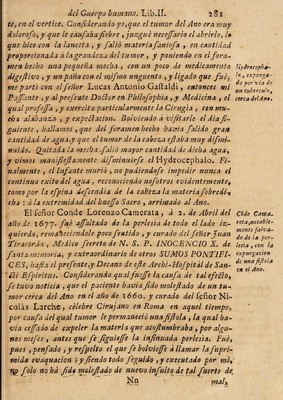 del Cuerpo humano. Lib.II. 281
te, en el vertice. Considerando yo, que el tumor del Ano era muy
doloroso, y que le causaba fiebre, juzguè necessario el abrirlo, lo
que hice con la lanceta, y saliò materia saniosa, en cantidad
proporcionada à la grandeza del tumor, y poniendo en el fora-
men hecho una pequeña mecha, con un poco de medicamento
digestivo, y un paño con el mismo unguento, y ligado que fuè,
me partì con el señor Lucas Antonio Gastaldi, entonces mi
Passiente, y al presente Doctor en Philosophia, y Medicina, el
qual professa, y exercita particularmente la Cirugia, con mu-
cha alabanza, y expectacion. Bolviendo à visitarle el dia si-
guiente, hallamos, que del foramen hecho havia salido gran
cantidad de agua, y que el tumor de la cabeza estaba muy dismi-
nuido. Quitada la mecha saliò mayor cantidad de dicha agua,
y vimos manifiestamente disminuirse el Hydrocephalo. Fi-
nalmente, el Infante muriò, no pudiendose impedir nunca el
continuo exito del agua, reconociendo nosotros evidentemente,
como por la espina descendia de la cabeza la materia sobredi-
cha: à la extremidad del huesso Sacro, arrimado al Ano.
Hydrocepha-
lo, expurga-
do por via de
un tuberculo,
cerca del Ano.
El señor Conde Lorenzo Camerata, à 2. de Abril del
año de 1677. fuè assaltado de la perlesia de todo el lado iz-
quierdo, restableciendole poco sentido, y curado del señor Juan
Tiracorda, Medico secreto de N. S. P. INOCENCIO X. de
santa memoria, y extraordinario de otros SUMOS PONTIFI-
CES, hasta el presente, y Decano de este Archi-Hospital de San-
cti Espiritus. Considerando qual fuesse la causa de tal efecto,
se tuvo noticia, que el paciente havia sido molestado de un tu-
mor cerca del Ano en el año de 1660. y curado del señor Ni-
colàs Larche, cèlebre Cirujano en Roma en aquel tiempo,
por causa del qual tumor le permaneciò una fistola, la qual ha-
via cessado de expeler la materia que acostumbraba, por algu-
nos meses, antes que se siguiesse la insinuada perlesia. Fuè,
pues, pensado, y resuelto el que se bolviesse à llamar la supri-
mida evaquacion; y siendo todo seguido, y executado por mi,
no solo no hà sido molestado de nuevo insulto de tal suerte de
Conde Came-
rata, notable-
mente
do de la per-
lesia, con la
expurgacion
de una fistola
en el Ano.
Nn mal,